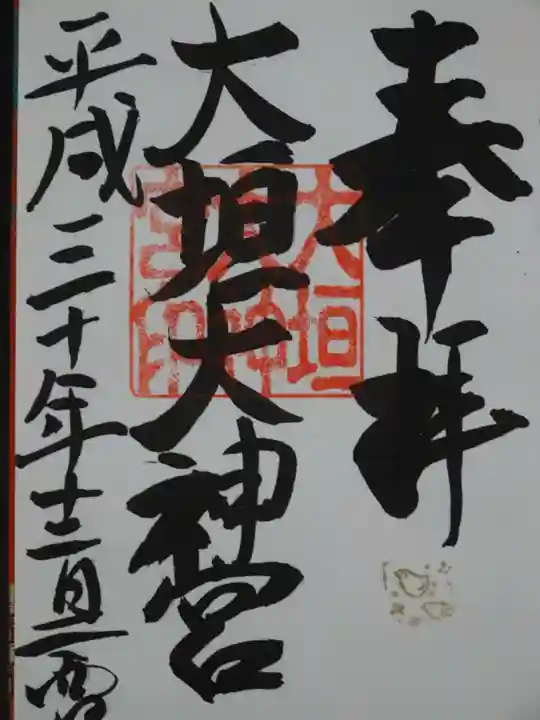 奉拝
大垣天神宮
大垣
天神
宮印
平成三十年十二月二